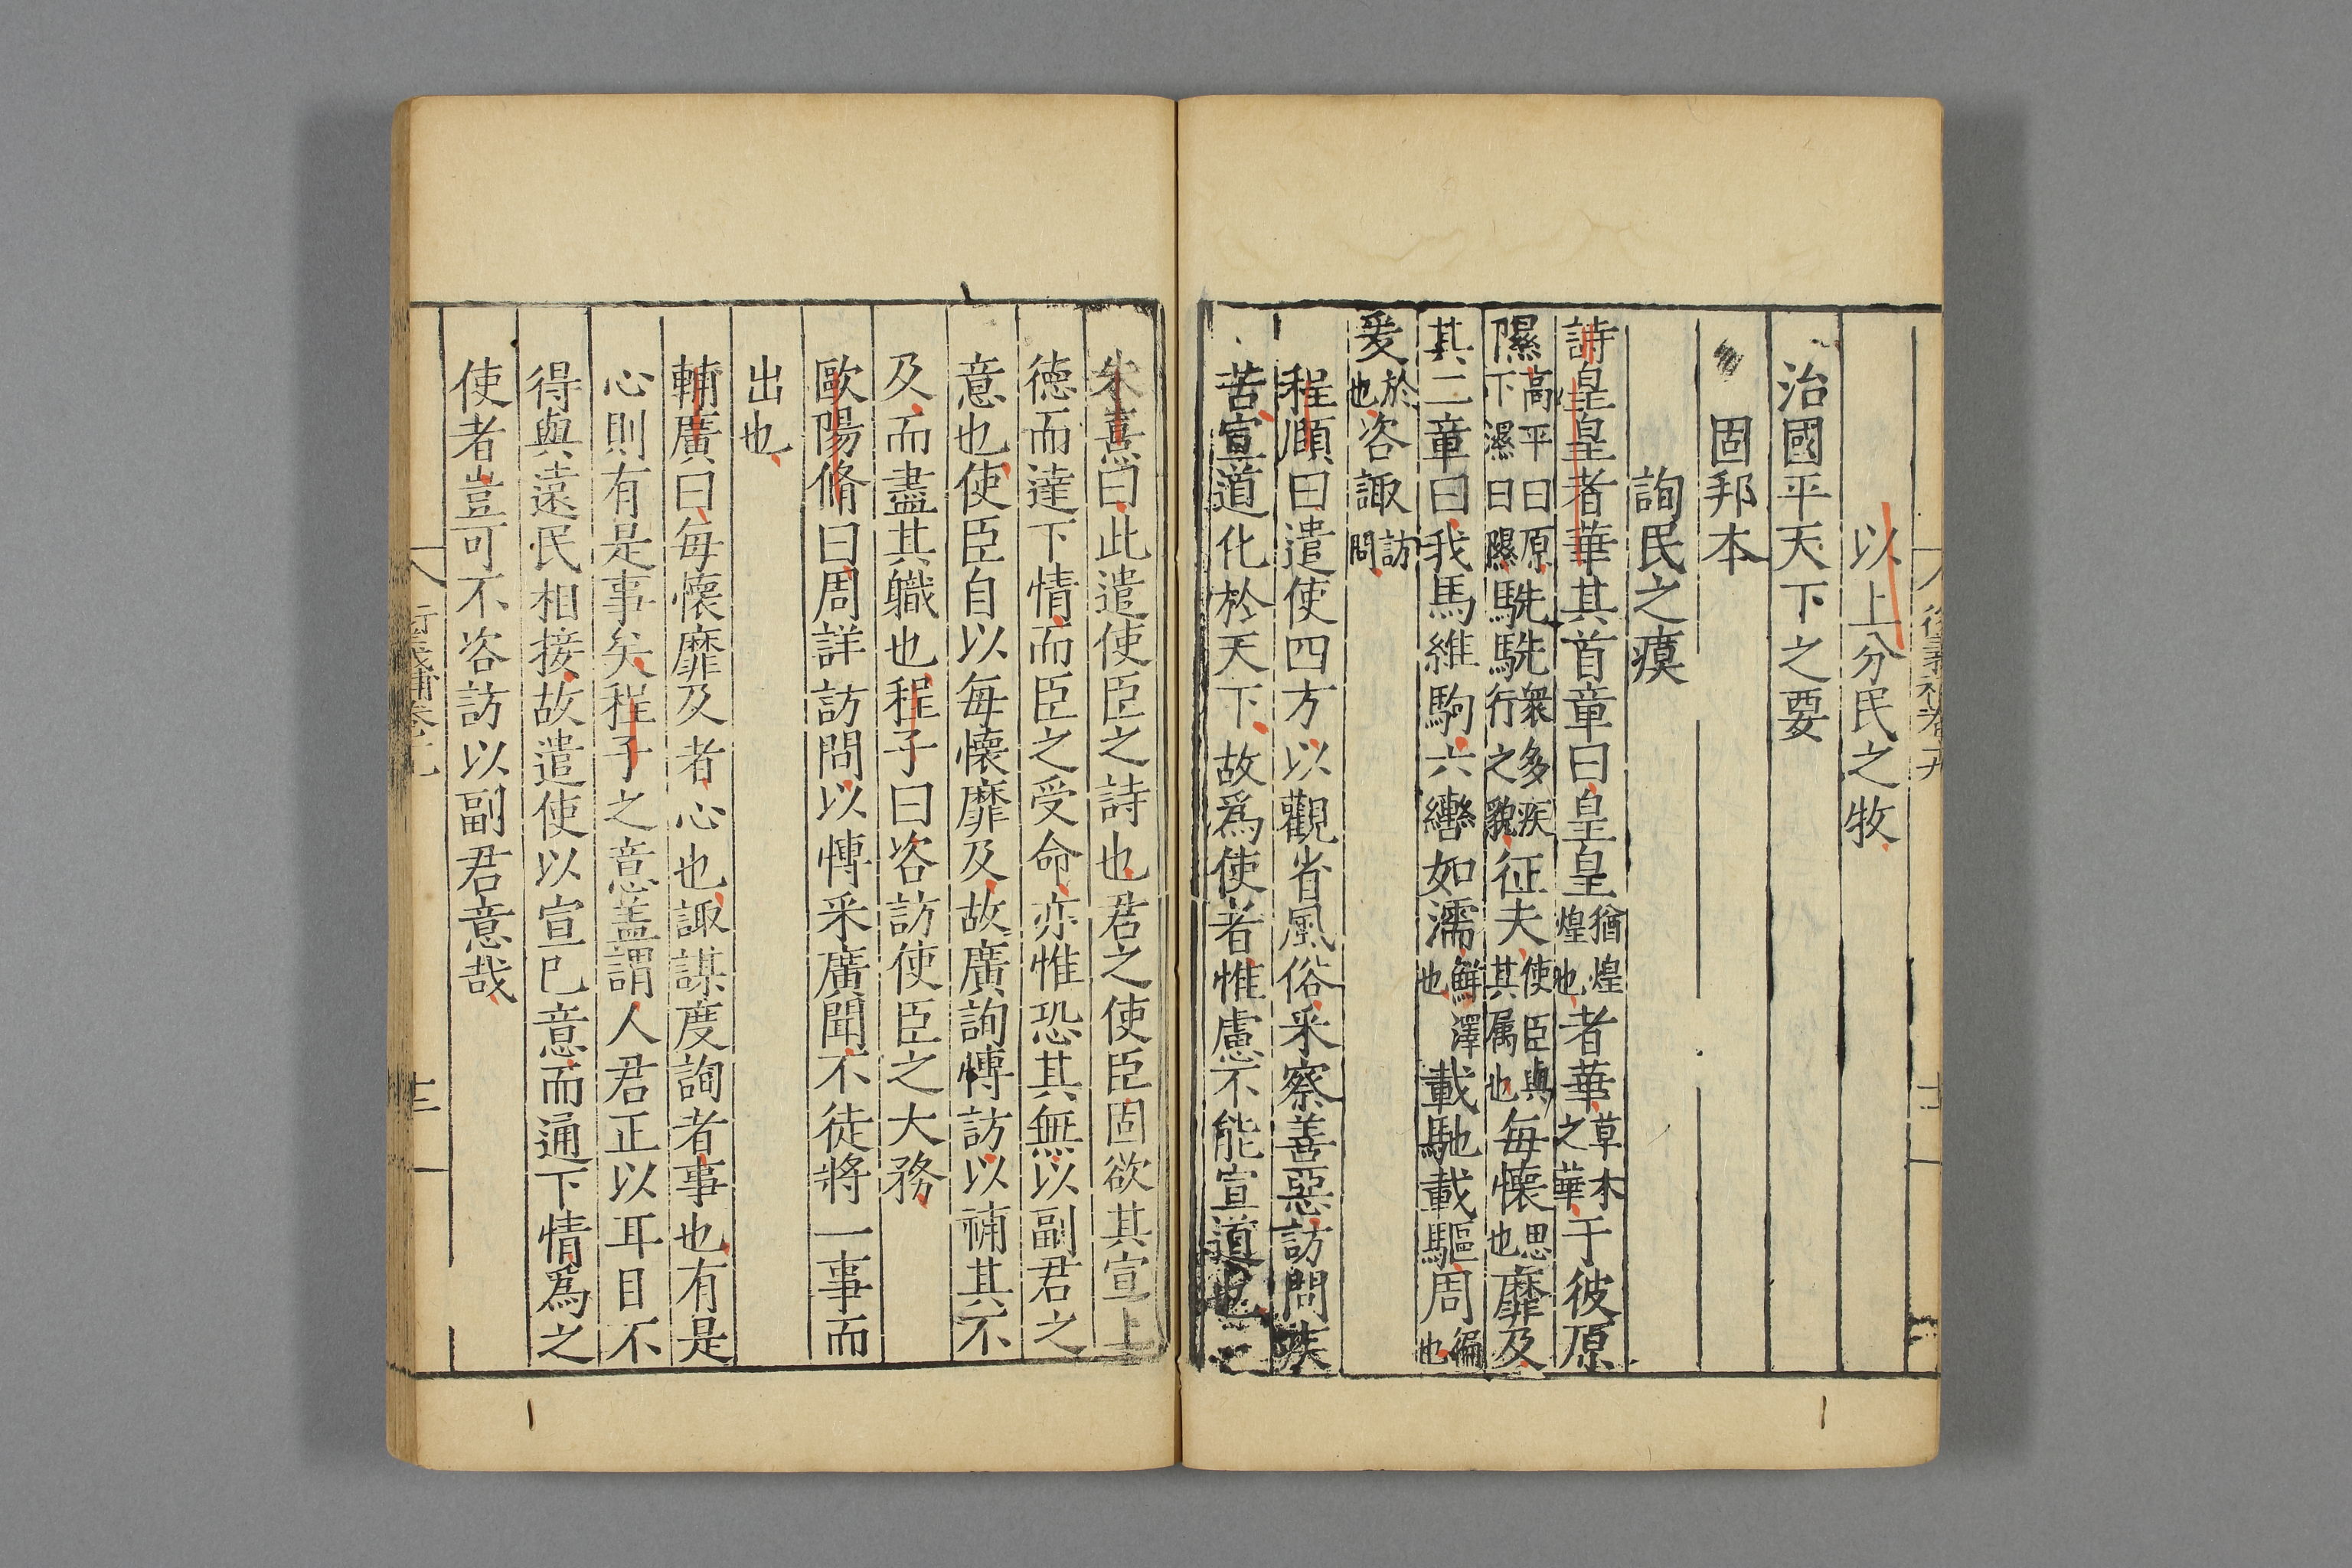 以上分民之牧
治國平天下之要
固邦本
詢民之瘼
詩皇皇者華其首章曰皇皇猶煌煌也者華草木之華于彼原
隰高平曰原下濕曰隰駪駪衆多疾行之貌征夫使臣與其属也每懷思也靡及
其二章曰我馬維駒六轡如濡鮮澤也載馳載驅周徧也
爰於也咨諏訪問
程頤曰遣使四方以觀省風俗采察善惡訪問疾
苦宣道化於天下故爲使者惟慮不能宣道
朱熹曰此遣使臣之詩也君之使臣固欲其宣上
德而達下情而臣之受命亦惟恐其無以副君之
意也使臣自以每懷靡及故廣詢博訪以補其不
及而盡其職也程子曰咨訪使臣之大務
歐陽脩曰周詳訪問以博采廣聞不徒將一事而
出也
輔廣曰每懷靡及者心也諏謀度詢者事也有是
心則有是事矣程子之意蓋謂人君正以耳目不
得與遠民相接故遣使以宣已意而通下情爲之
使者豈可不咨訪以副君意哉